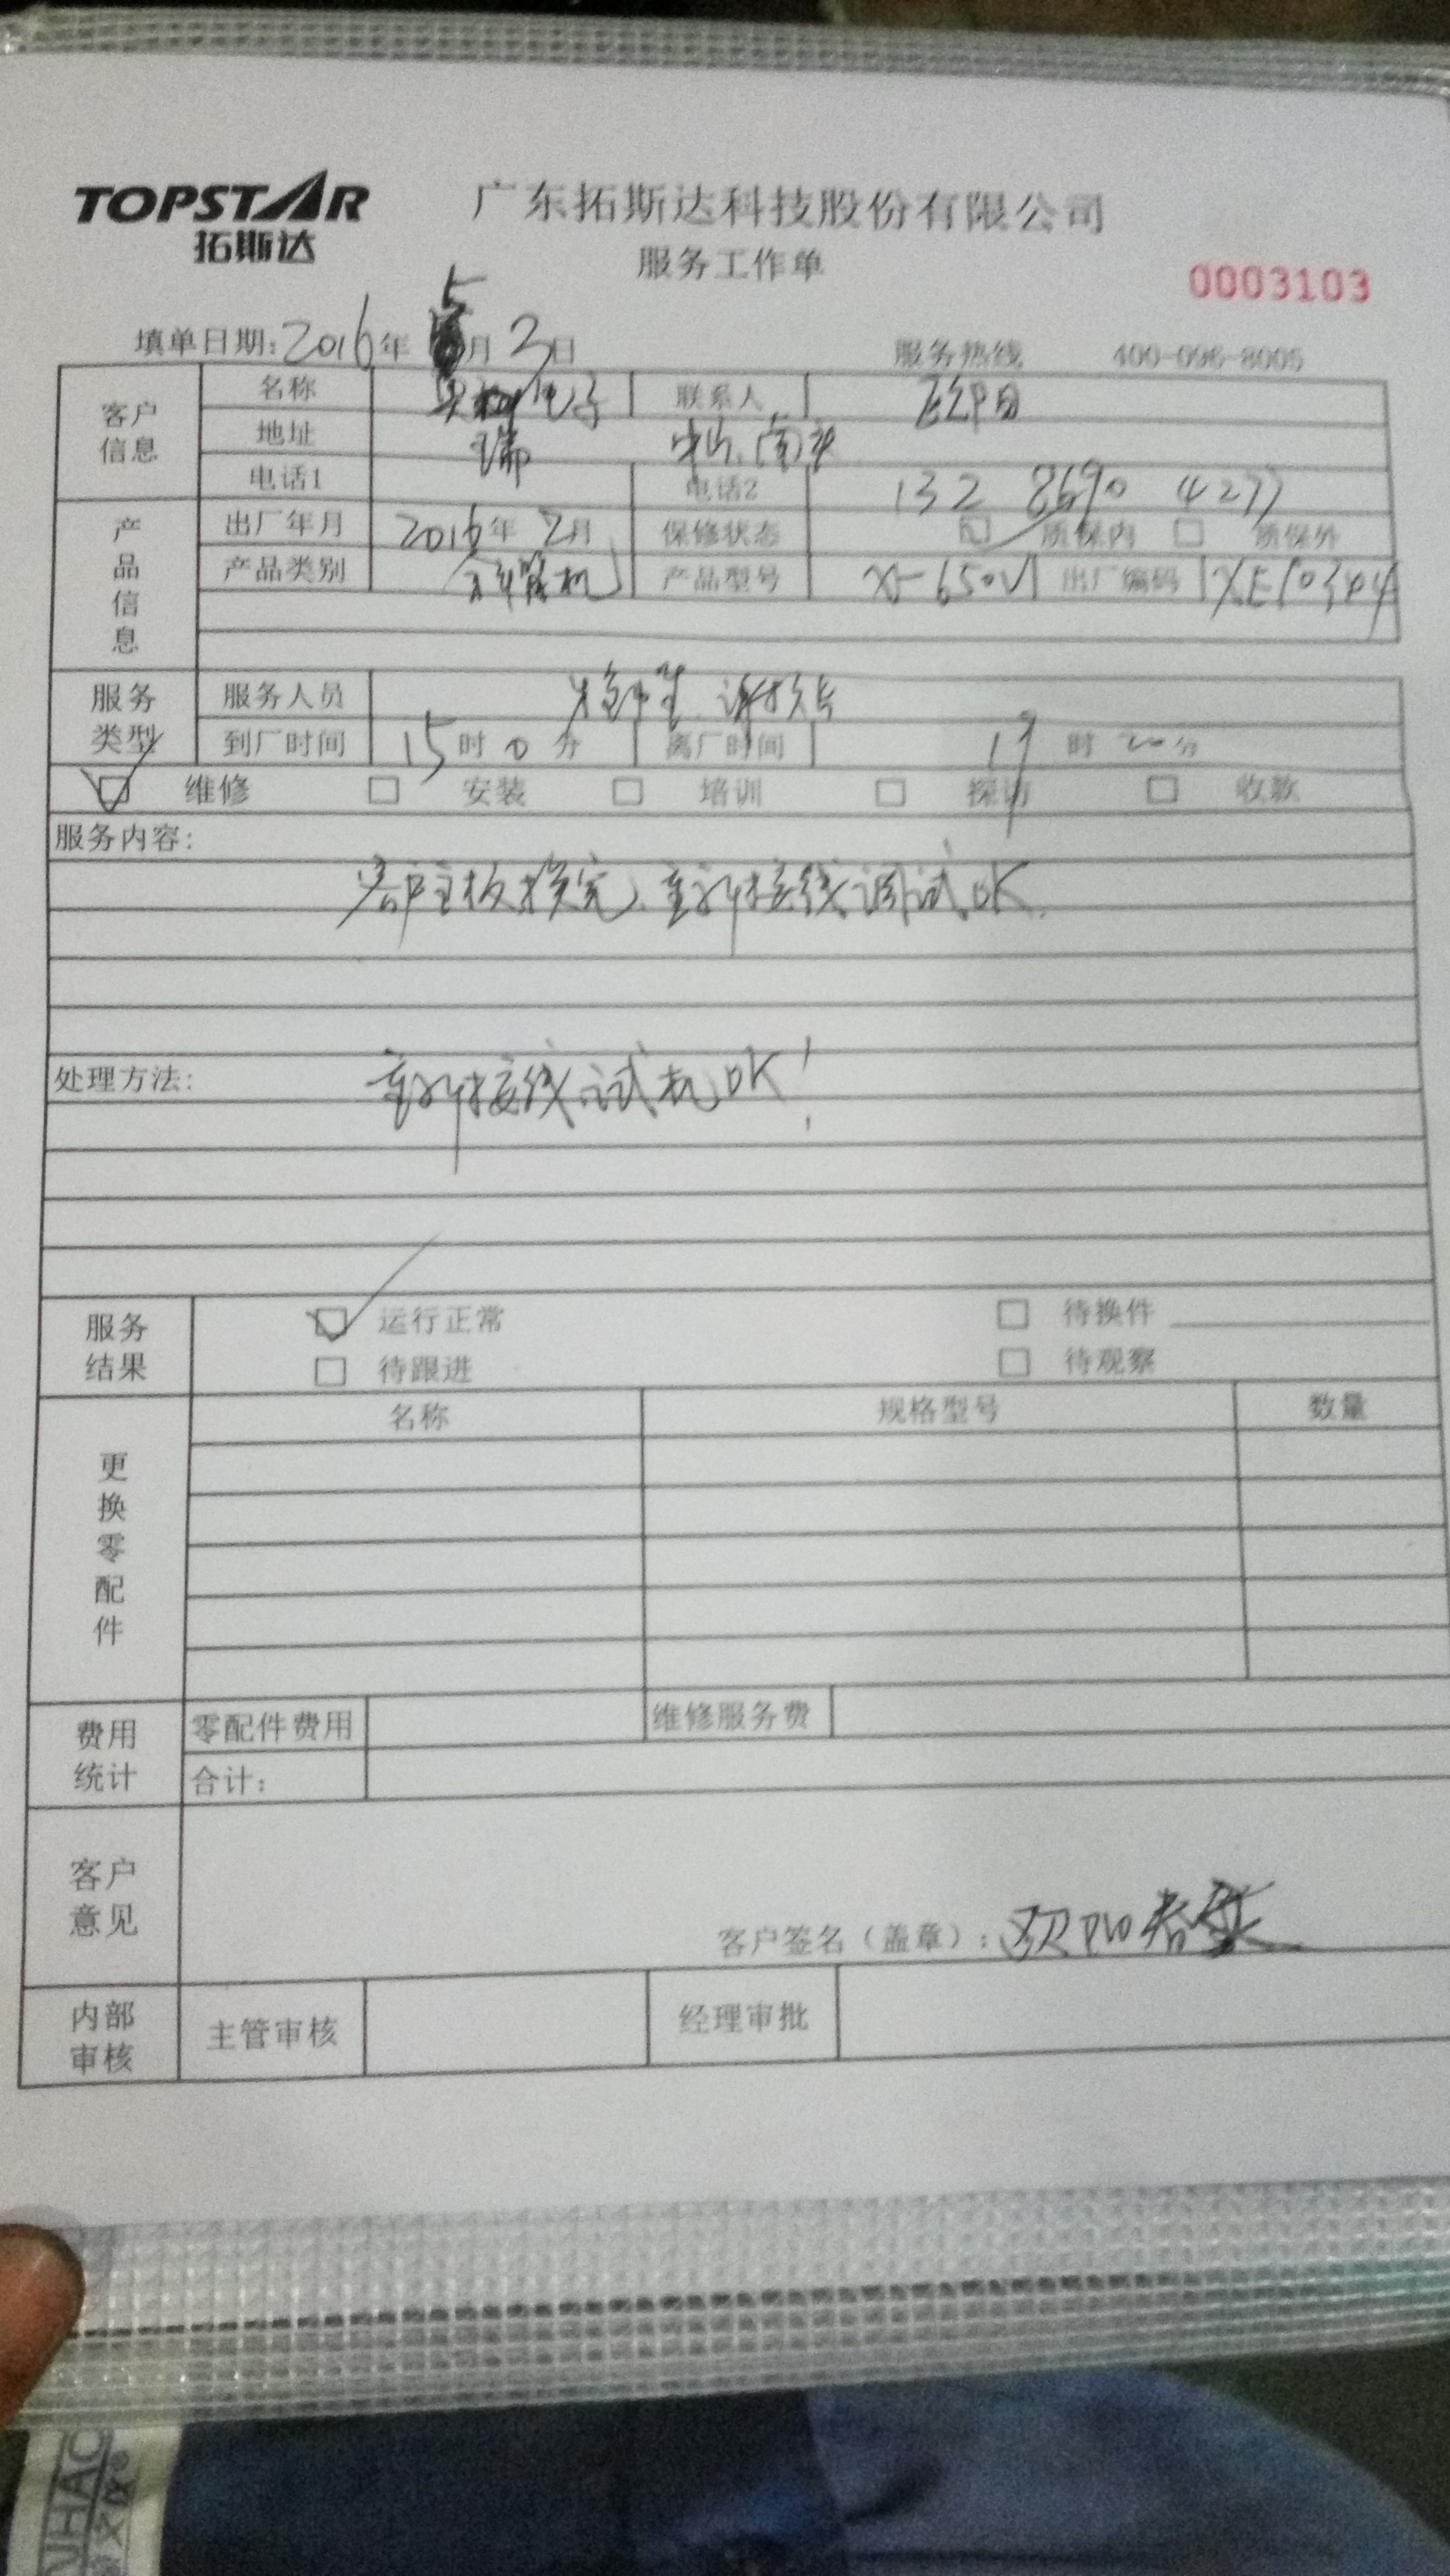 TOPSTAR
拓斯达
广东拓斯达科技股份有限公司
服务工作单
0003103
填单日期: 2016年 5月 3日
服务热线 400-096-8005
客户信息
名称 电子 联系人
地址 中山南头
电话1 电话2 132 8690 4277
产品信息
出厂年月 2016年 2月 保修状态 质保内 质保外
产品类别 产品型号 出厂编码
服务类型
服务人员
到厂时间 15时 0分 离厂时间 时 20分
维修 安装 培训 探访 收款
服务内容:
主板 重新接线调试OK.
处理方法: 重新接线试机OK!
服务结果
运行正常 待换件
待跟进 待观察
更换零配件
名称 规格型号 数量
费用统计
零配件费用 维修服务费
合计:
客户意见
客户签名(盖章): 欧阳
内部审核
主管审核 经理审批
NHAO